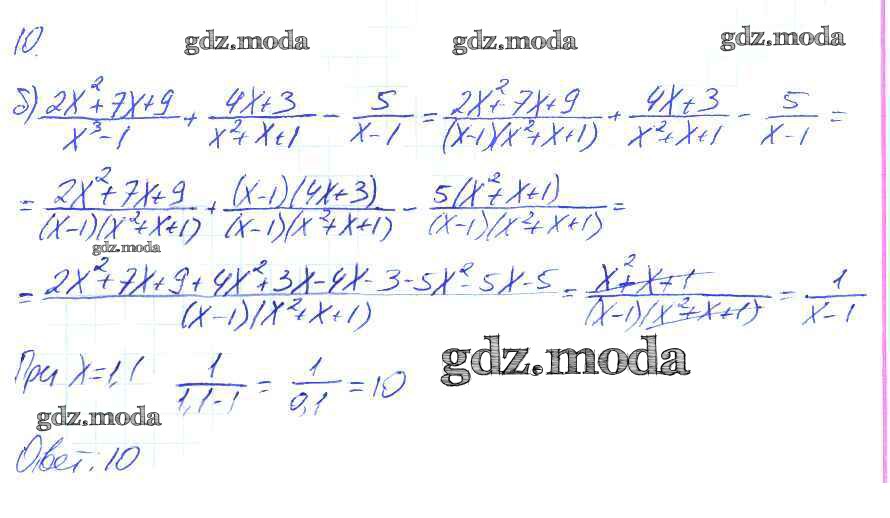 10.
gdz.moda gdz.moda gdz.moda
б) (2x²+7x+9)/(x³-1) + (4x+3)/(x²+x+1) - 5/(x-1) = (2x²+7x+9)/((x-1)(x²+x+1)) + (4x+3)/(x²+x+1) - 5/(x-1) =
= (2x²+7x+9)/((x-1)(x²+x+1)) + ((x-1)(4x+3))/((x-1)(x²+x+1)) - (5(x²+x+1))/((x-1)(x²+x+1)) =
gdz.moda
= (2x²+7x+9+4x²+3x-4x-3-5x²-5x-5)/((x-1)(x²+x+1)) = (x²+x+1)/((x-1)(x²+x+1)) = 1/(x-1)
При x=1,1 1/(1,1-1) = 1/(0,1) = 10
gdz.moda
gdz.moda
Ответ: 10